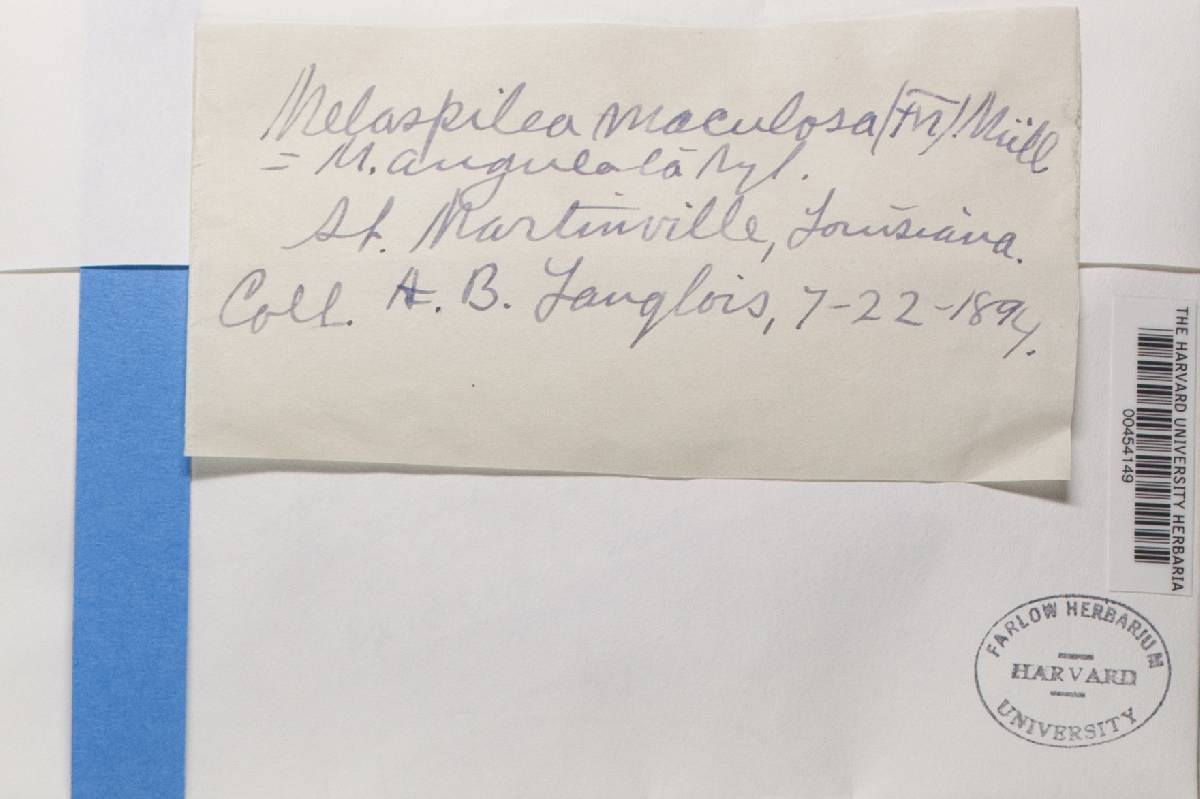 Melaspilea maculosa (Fr) Müll
= M. angulata Nyl.
St. Martinville, Louisiana.
Coll. A. B. Langlois, 7-22-1894.
THE HARVARD UNIVERSITY HERBARIA
00454149
FARLOW HERBARIUM
HARVARD
UNIVERSITY